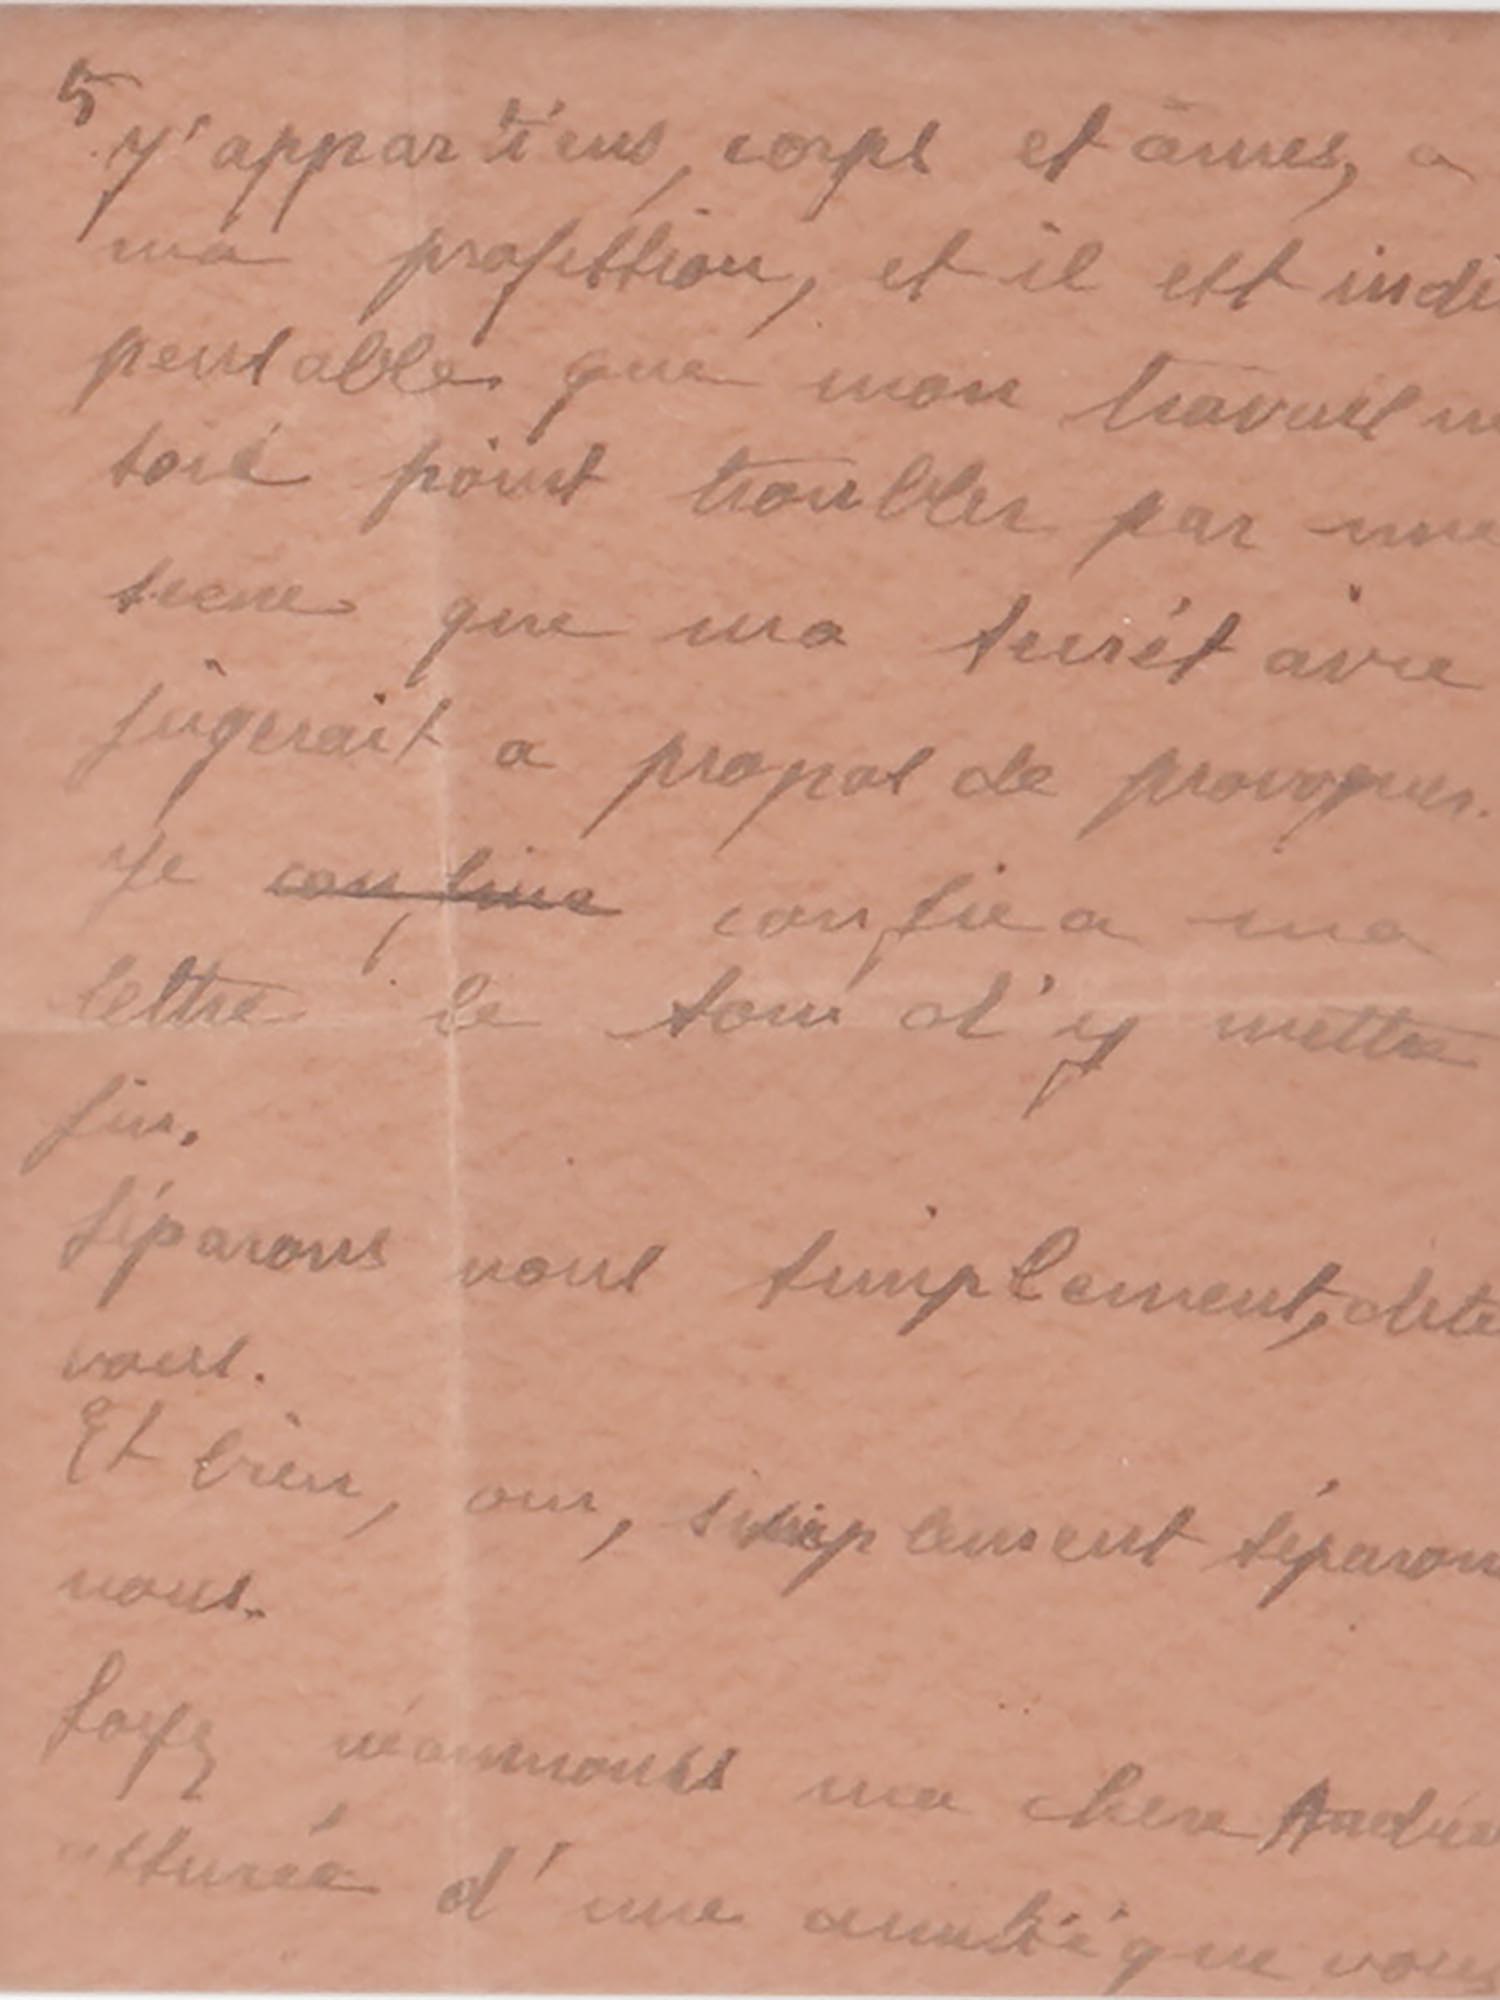 5
j'appartiens, corps et âmes, a
ma profession, et il est indi
pensable que mon travail ne
soié point troubler par une
scene que ma
jugerait a propos de provoquer.
Je confie a ma
lettre le soin d'y mettre
fin.
Séparons nous simplement, dite
vous.
Et bien, oui, simplement séparons
nous.
Soyez néanmoins ma chere
assurée d'une amitié que vous